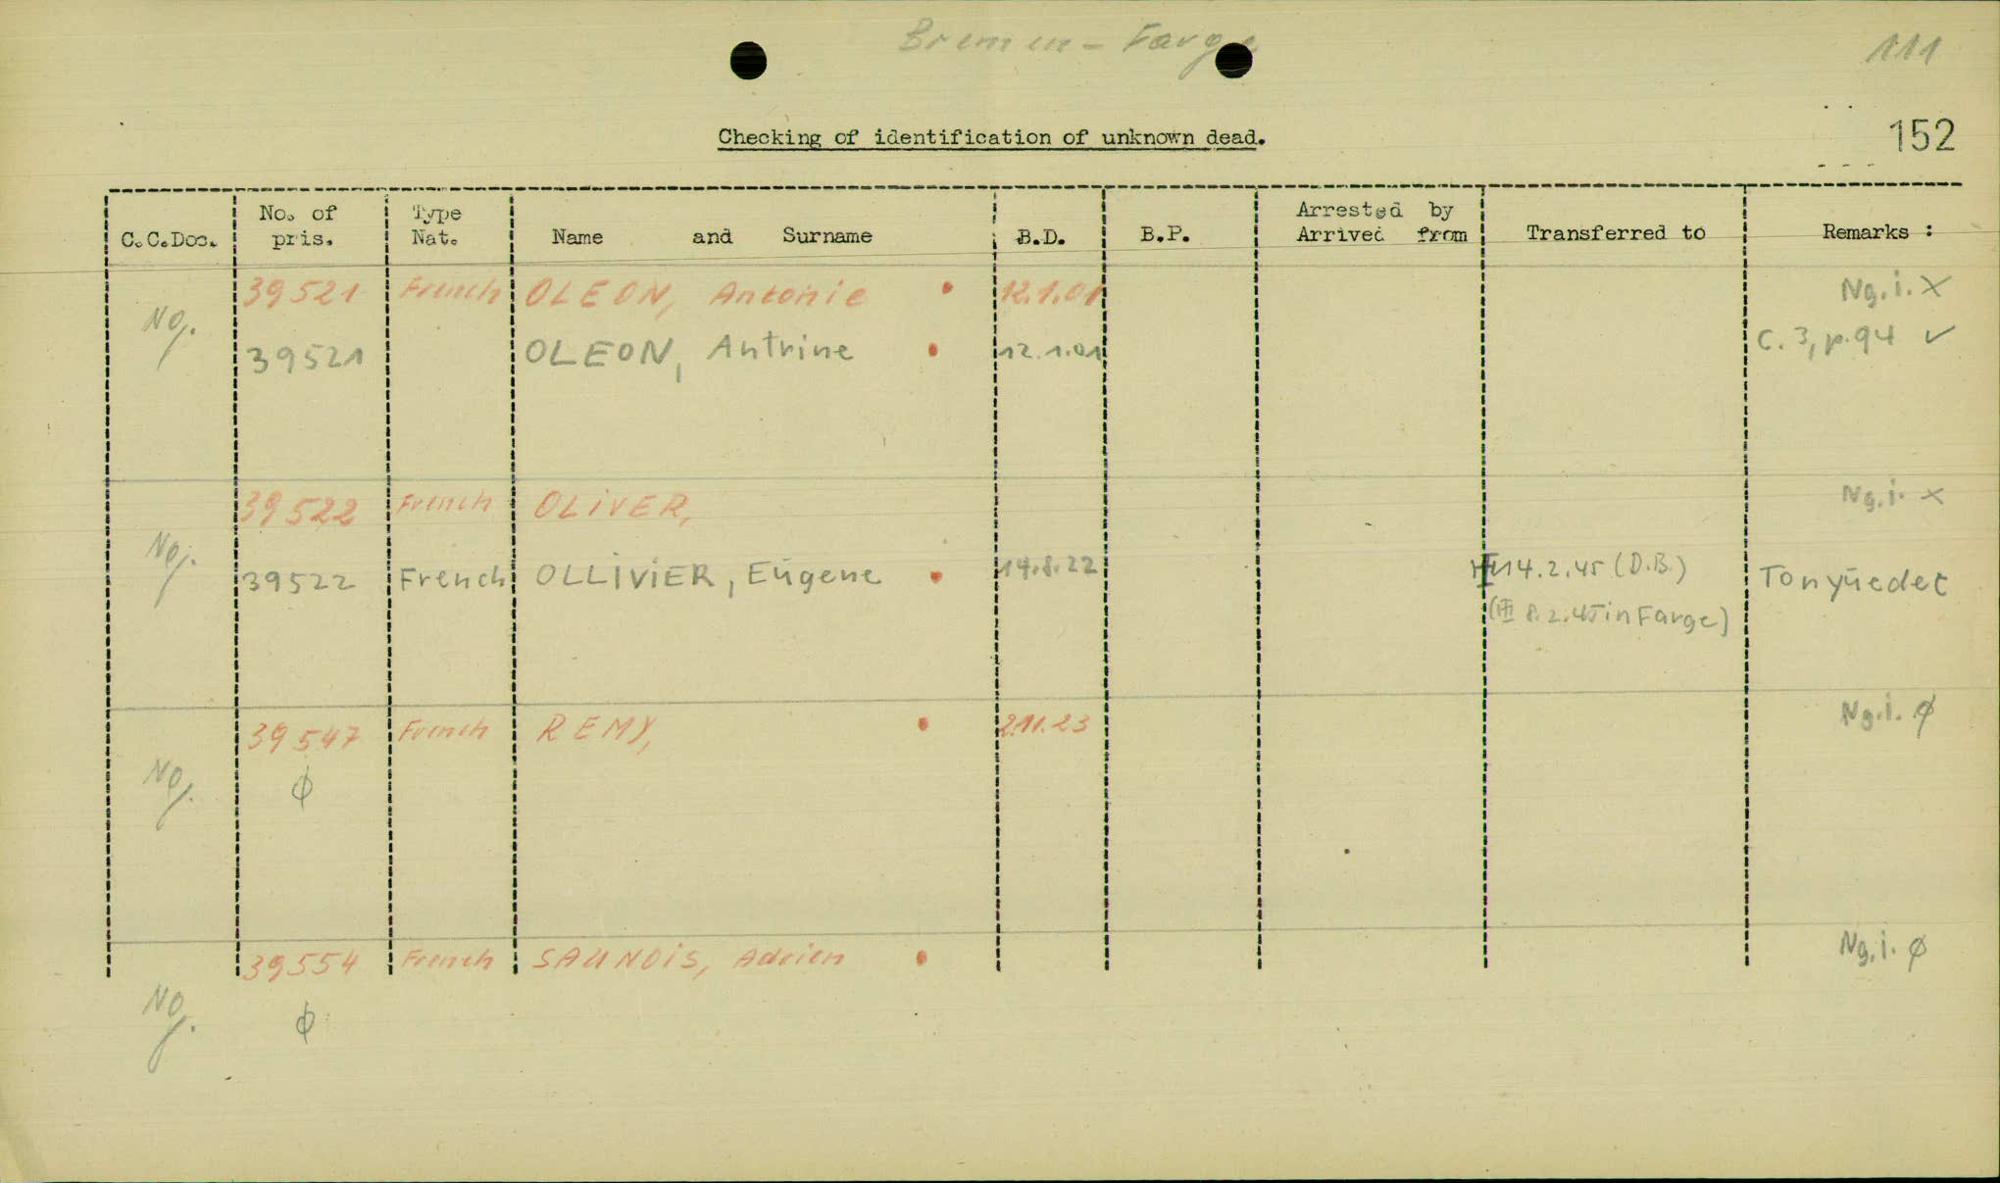 Bremen-Farge
111
Checking of identification of unknown dead.
152
C.C.Doc. No. of pris. Type Nat. Name and Surname B.D. B.P. Arrested by Arrived from Transferred to Remarks :
39521 French OLEON, Antonie • 12.1.01 Ng.i. X
Ng.
39521 OLEON, Antrine • 12.1.01 C. 3, p.94 ✓
39522 French OLiVER, Ng.i. x
Ng.
39522 French OLLiViER, Eügene • 14.8.22 14.2.45 (D.B.) Tonyüedec
( 8.2.45 in Farge)
39547 French REMY, • 2.11.23 Ng.i. ϕ
Ng. ϕ
39554 French SAUNOiS, Adrien • Ng.i. ϕ
Ng. ϕ